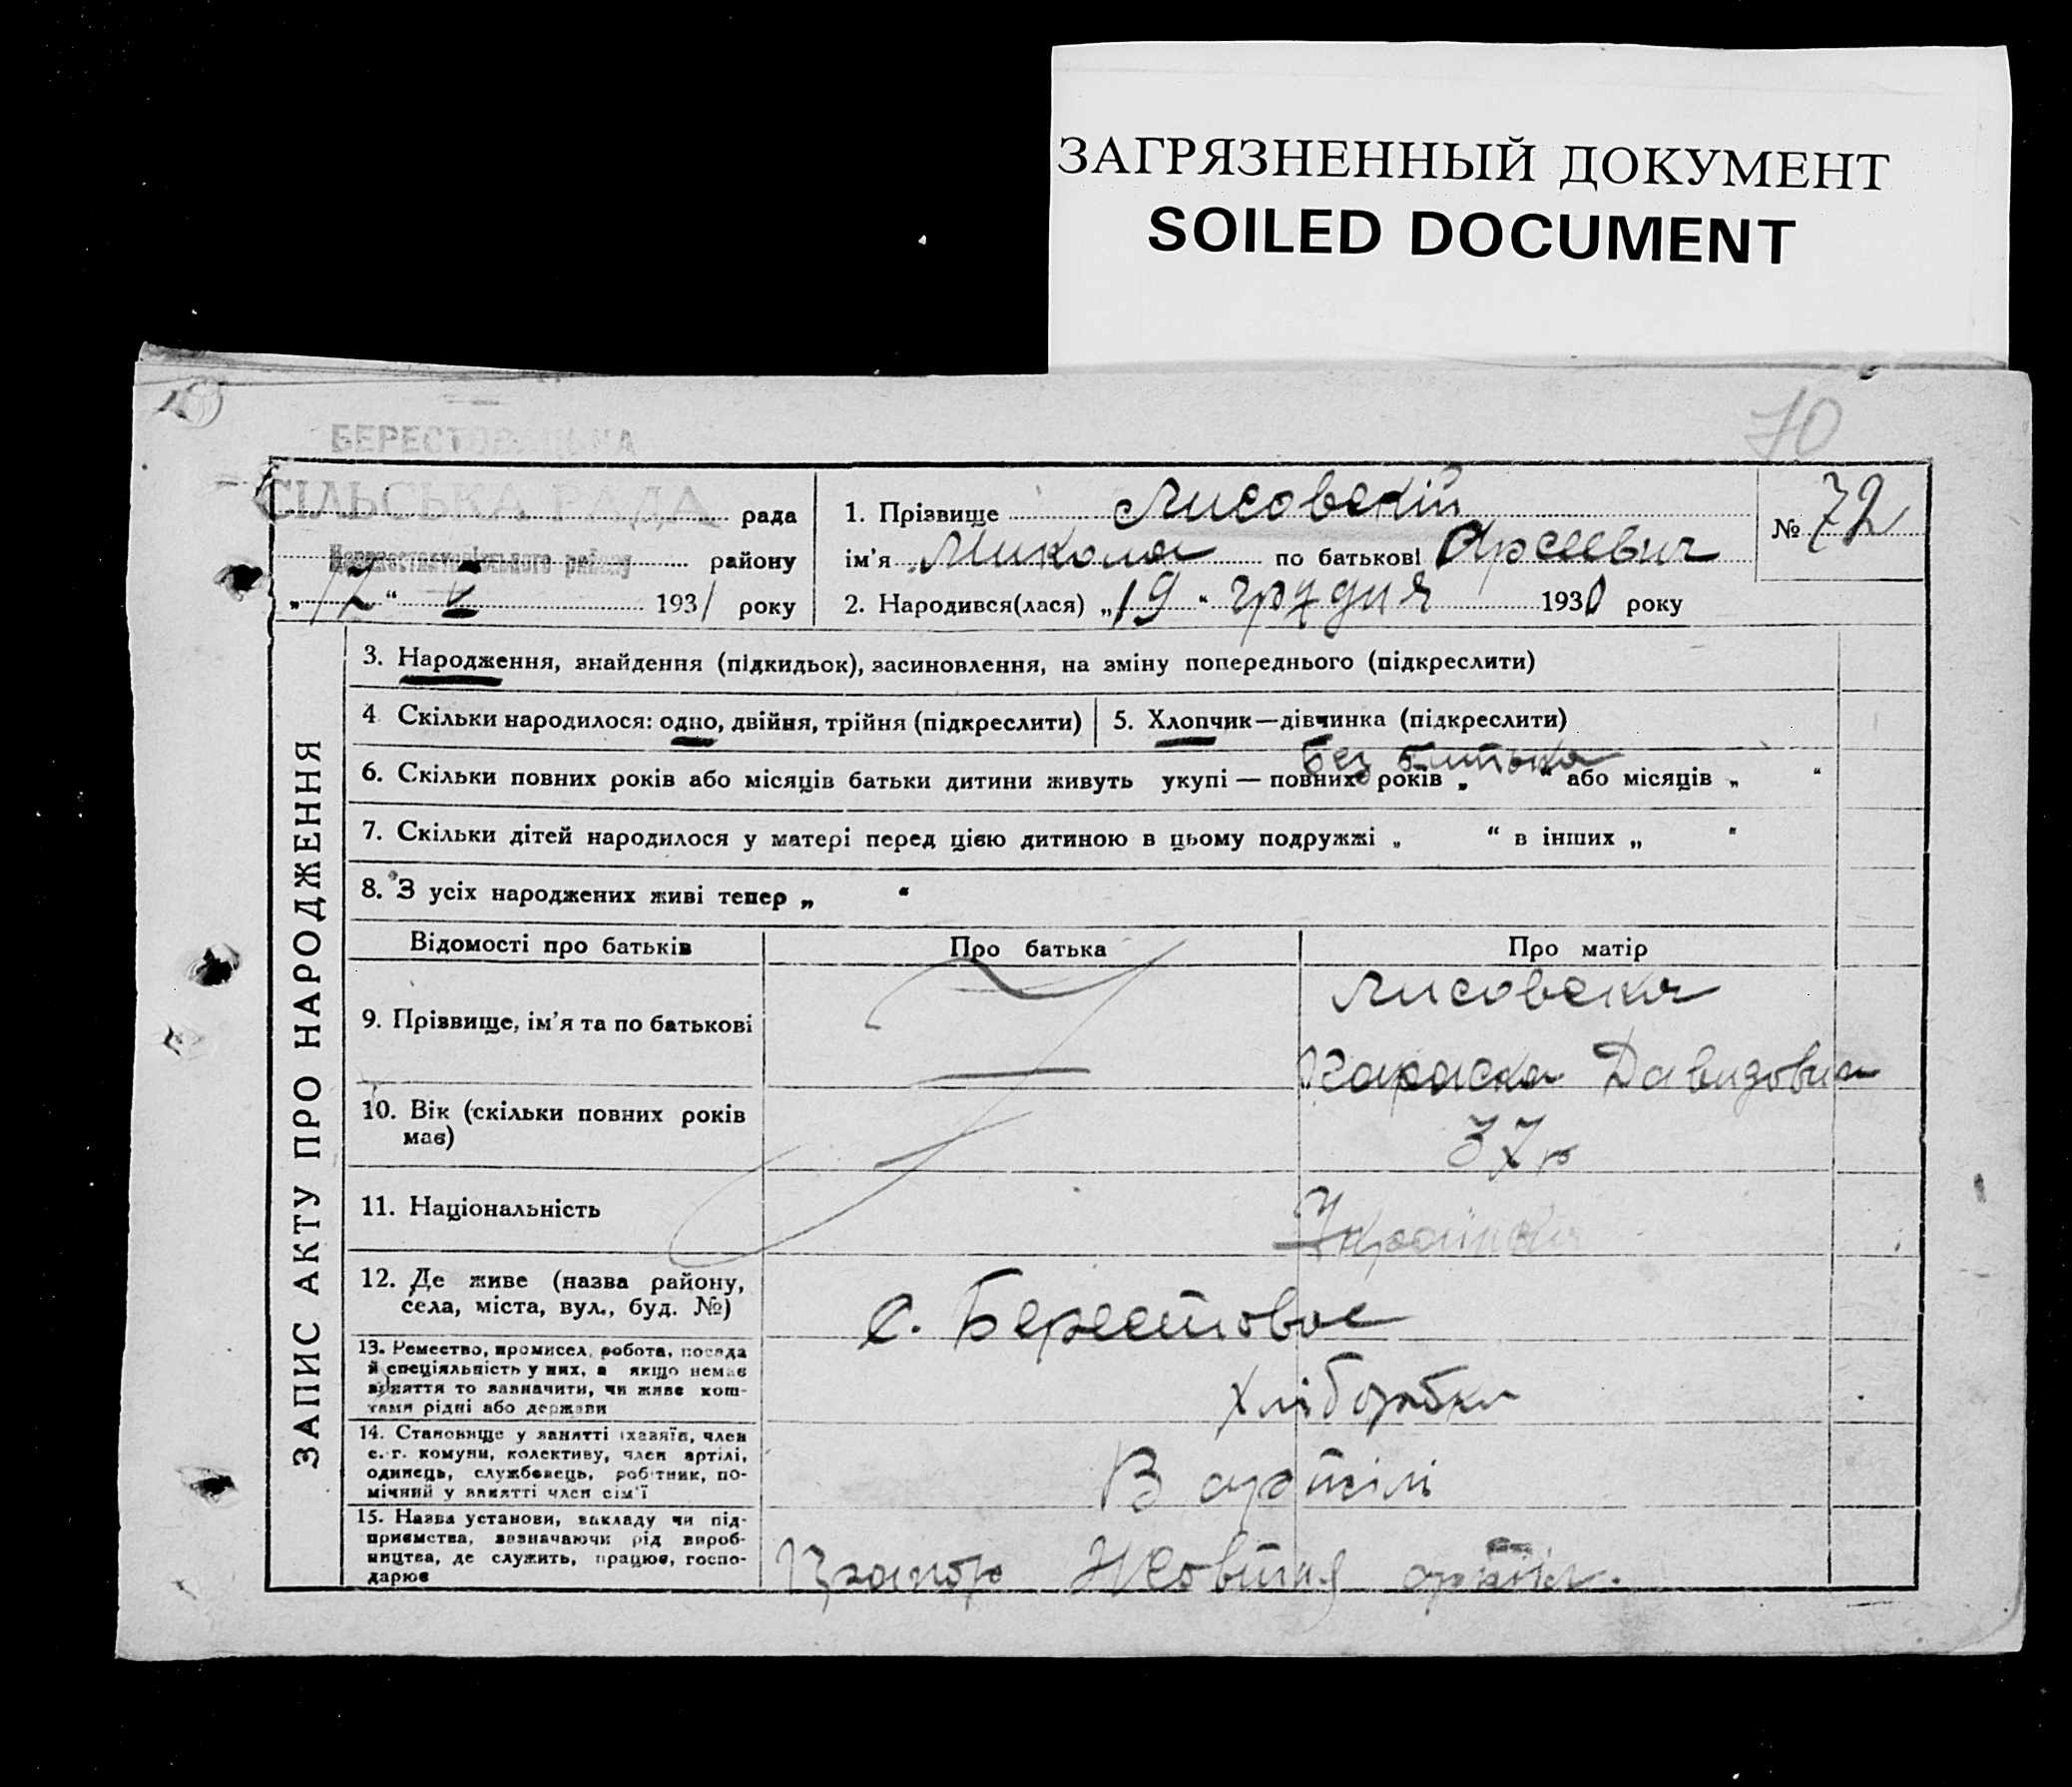 ЗАГРЯЗНЕННЫЙ ДОКУМЕНТ
SOILED DOCUMENT
70
БЕРЕСТОВЕЦЬКА
СІЛЬСЬКА РАДА рада
району району
„12“ V 1931 року
1. Прізвище Лисовский
ім'я Микола по батькові Арсеевич
2. Народився(лася) „19“ грудня 1930 року
№ 72
ЗАПИС АКТУ ПРО НАРОДЖЕННЯ
3. Народження, знайдення (підкидьок), засиновлення, на зміну попереднього (підкреслити)
4 Скільки народилося: одно, двійня, трійня (підкреслити)
5. Хлопчик—дівчинка (підкреслити)
Без батька
6. Скільки повних років або місяців батьки дитини живуть укупі — повних років „ “ або місяців „ “
7. Скільки дітей народилося у матері перед цією дитиною в цьому подружжі „ “ в інших „ “
8. З усіх народжених живі тепер „ “
Відомості про батьків Про батька Про матір
9. Прізвище, ім'я та по батькові
Лисовска
Параска Давидовна
10. Вік (скільки повних років
має)
37 р
11. Національність
Українка
12. Де живе (назва району,
села, міста, вул., буд. №)
с. Берестовае
13. Ремество, промисел, робота, посада
й спеціяльність у них, а якщо немає
заняття то зазначити, чи живе кош-
тами рідні або держави
хліборобка
14. Становище у занятті (хазяїн, член
с.-г. комуни, колективу, член артілі,
одинець, службовець, робітник, по-
мічний у занятті член сім'ї
В артілі
15. Назва установи, закладу чи під-
приємства, зазначаючи рід вироб-
ництва, де служить, працює, госпо-
дарює
Прапор Жовтня артіл.